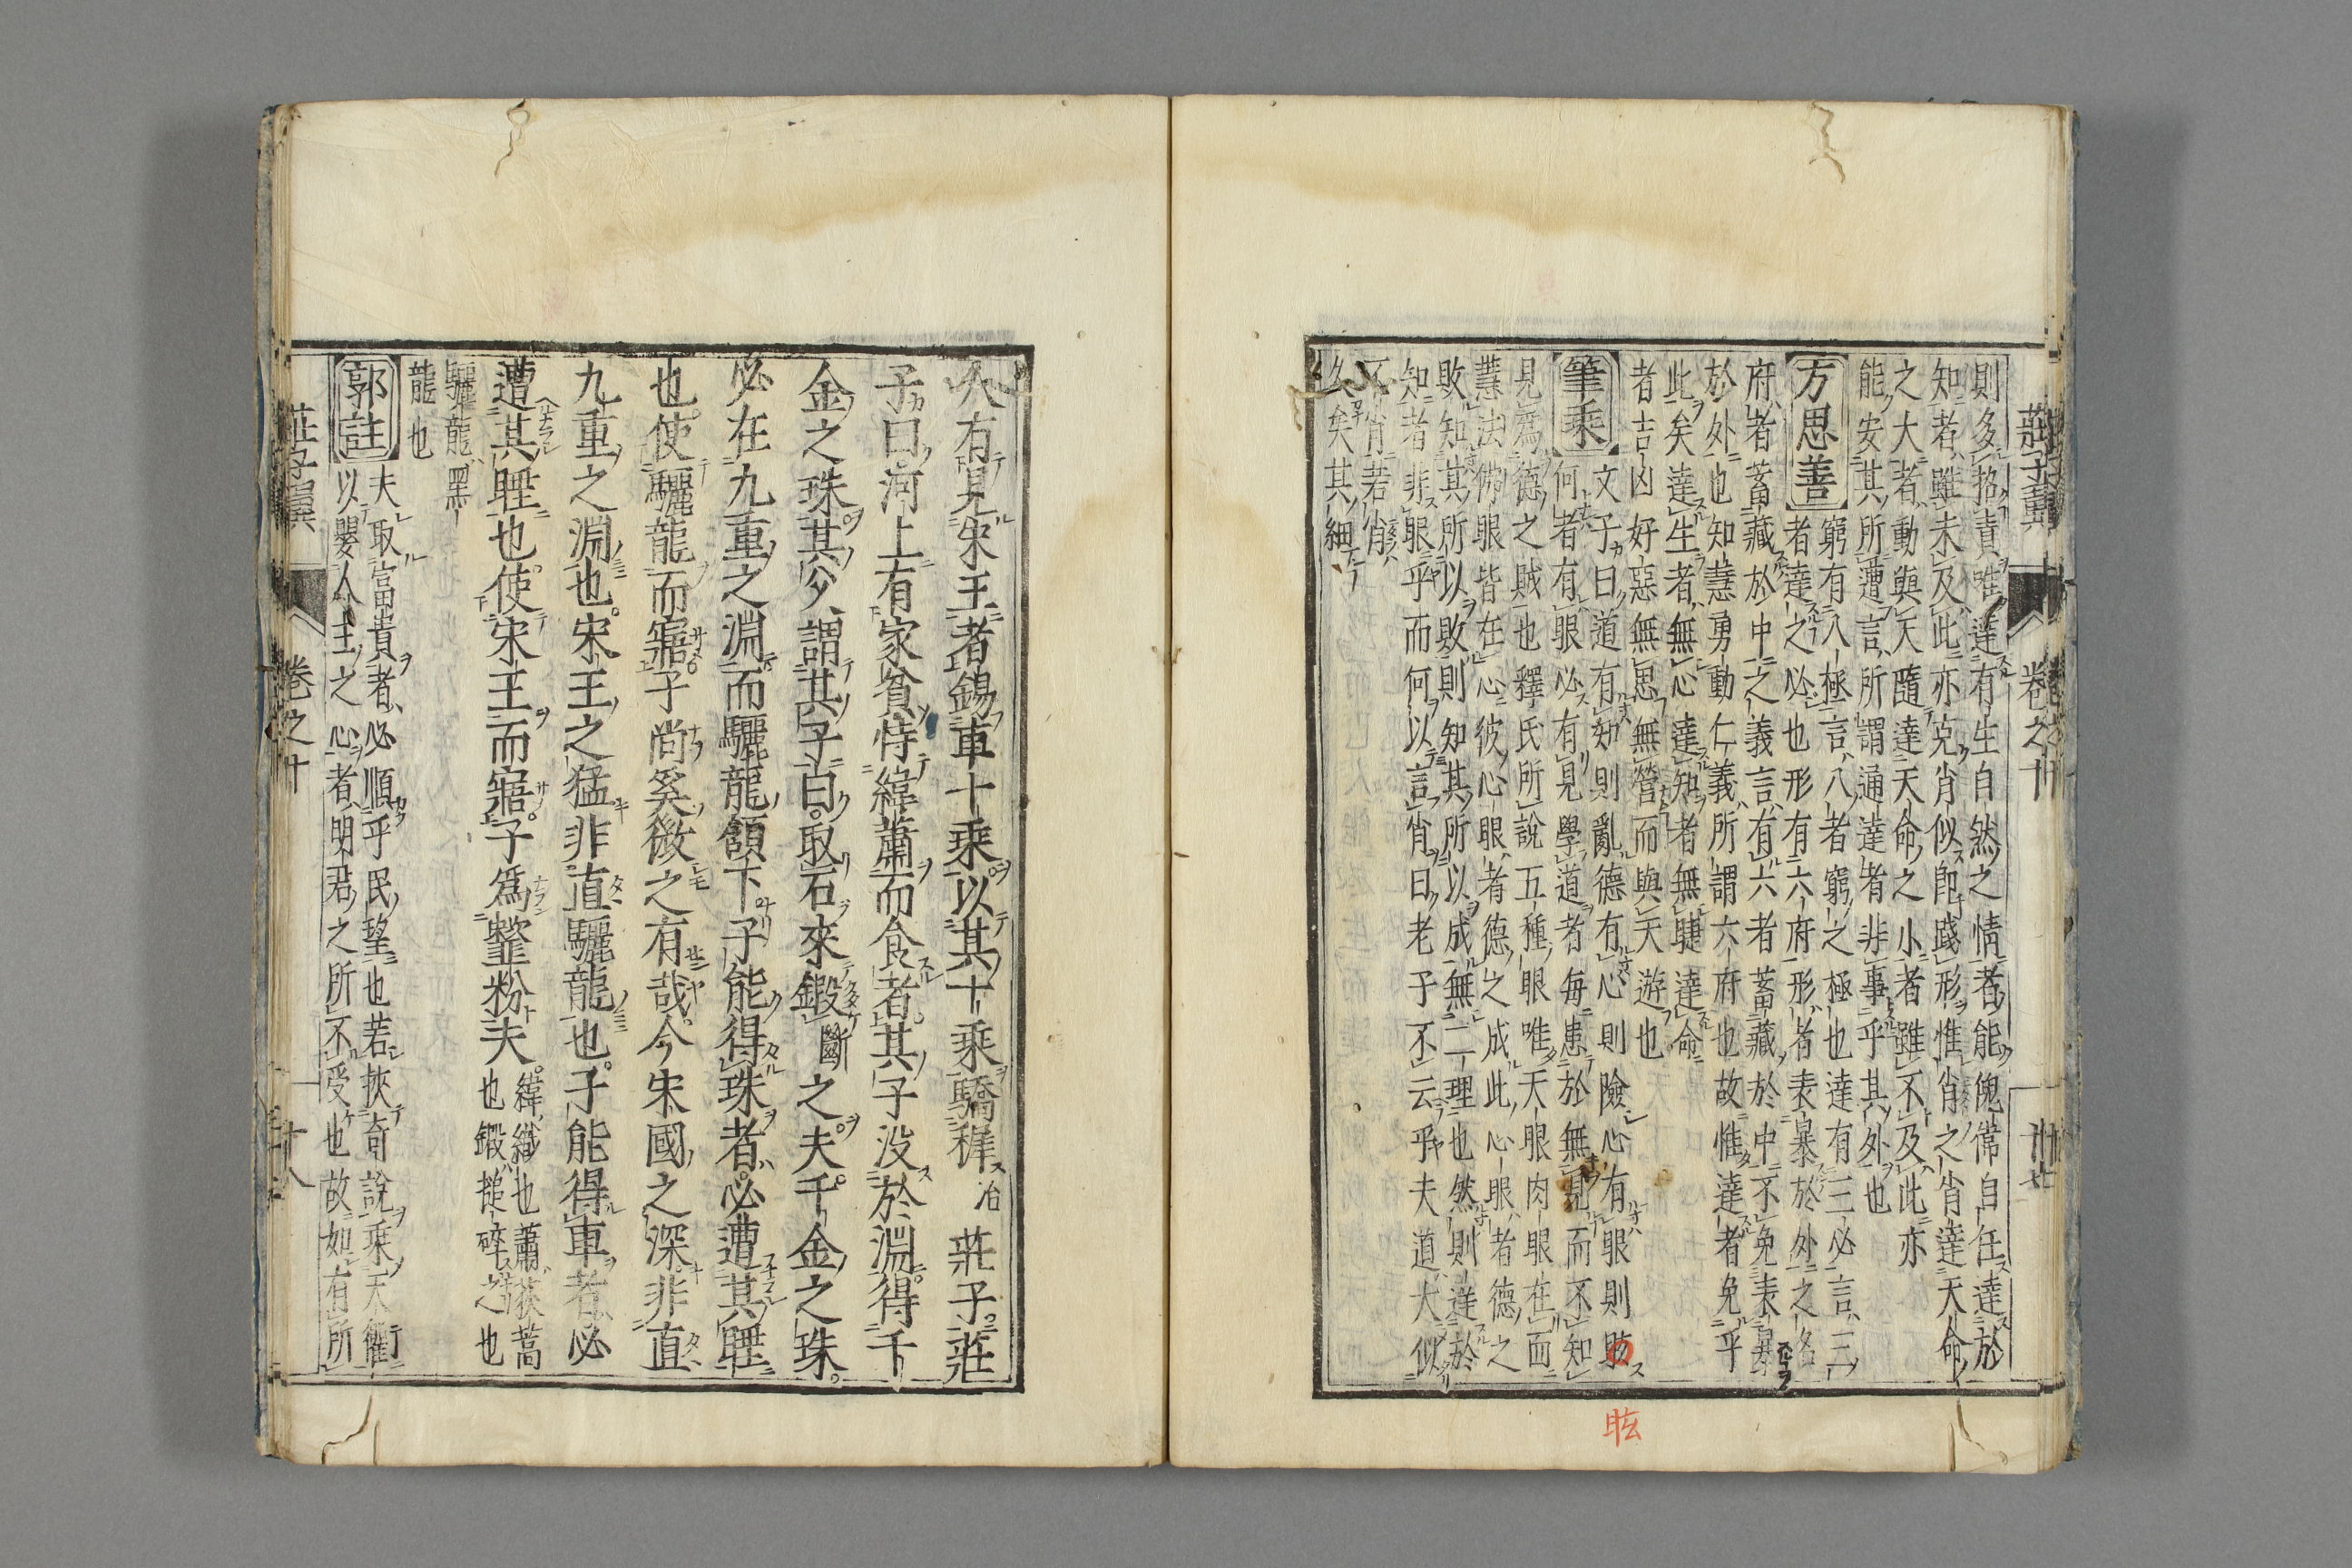 莊子翼 卷之十 廿七
則多挌責唯達有生自然之情者能傀常自任達於
知者雖未及此亦克肖似卽踐形惟肖之肖達天命
之大者動與天隨達天命之小者雖不及此亦
能安其所遭言所謂通達者非事乎其外也
方思善
窮有八極言八者窮之極也達有三必言三
者達之必也形有六府形者表暴於外之名
府者蓄藏於中之義言有六者蓄藏於中不免表暴
於外也知慧勇動仁義所謂六府也故惟達者免乎
此矣達生者無心達知者無䏈達命
者吉凶好惡無思無營而與天遊也
筆乘
文子曰道有知則亂德有心則險心有眼則眩
何者有眼必有見學道者每患於無見而不知
見爲德之賊也釋氏所說五種眼唯天眼肉眼在面
慧法佛眼皆在心彼心眼者德之成此心眼者德之
敗知其所以敗則知其所以成無二理也然則達於
知者非眼乎而何以言肖曰老子不云乎夫道大似
不肖若肖
久矣其細
眩
人有見宋王者錫車十乘以其十乘驕穉治莊子莊
子曰河上有家貧恃緯蕭而食者其子沒於淵得千
金之珠其父謂其子曰取石來鍛斷之夫千金之珠
必在九重之淵而驪龍頷下子能得珠者必遭其睡
也使驪龍而寤子尚奚微之有哉今宋國之深非直
九重之淵也宋王之猛非直驪龍也子能得車者必
遭其睡也使宋王而寤子爲虀粉夫
緯織也蕭荻蒿
也鍛搥碎之也
驪龍黑
龍也
郭註
夫取富貴者必順乎民望也若挾奇說乘天衢
以嬰人主之心者明君之所不受也故如有所
莊子翼 卷之十 十八